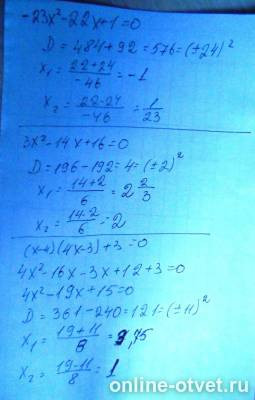 -23x²-22x+1=0
D=484+92=576=(±24)²
x₁=(22+24)/-46=-1
x₂=(22-24)/-46=1/23
3x²-14x+16=0
D=196-192=4=(±2)²
x₁=(14+2)/6=2 2/3
x₂=(14-2)/6=2
(x-4)(4x-3)+3=0
4x²-16x-3x+12+3=0
4x²-19x+15=0
D=361-240=121=(±11)²
x₁=(19+11)/8=3,75
x₂=(19-11)/8=1
online-otvet.ru